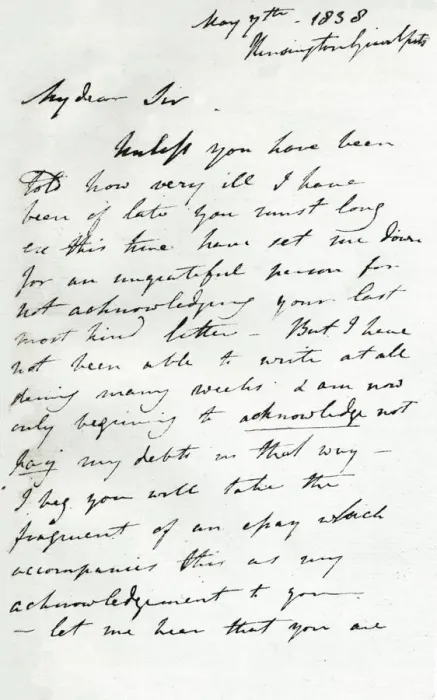 May 7th - 1838
Kensington Gravel Pits
My dear Sir
Unless you have been
told how very ill I have
been of late you must long
ere this time have set me down
for an ungrateful person for
not acknowledging your last
most kind letter - But I have
not been able to write at all
during many weeks & am now
only beginning to acknowledge not
pay my debts in that way -
I beg you will take the
fragment of an essay which
accompanies this as my
acknowledgement to you
- let me hear that you are